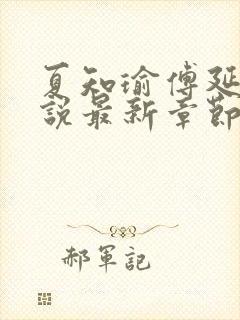 夏知瑜傅延
說最新章節
郝軍記